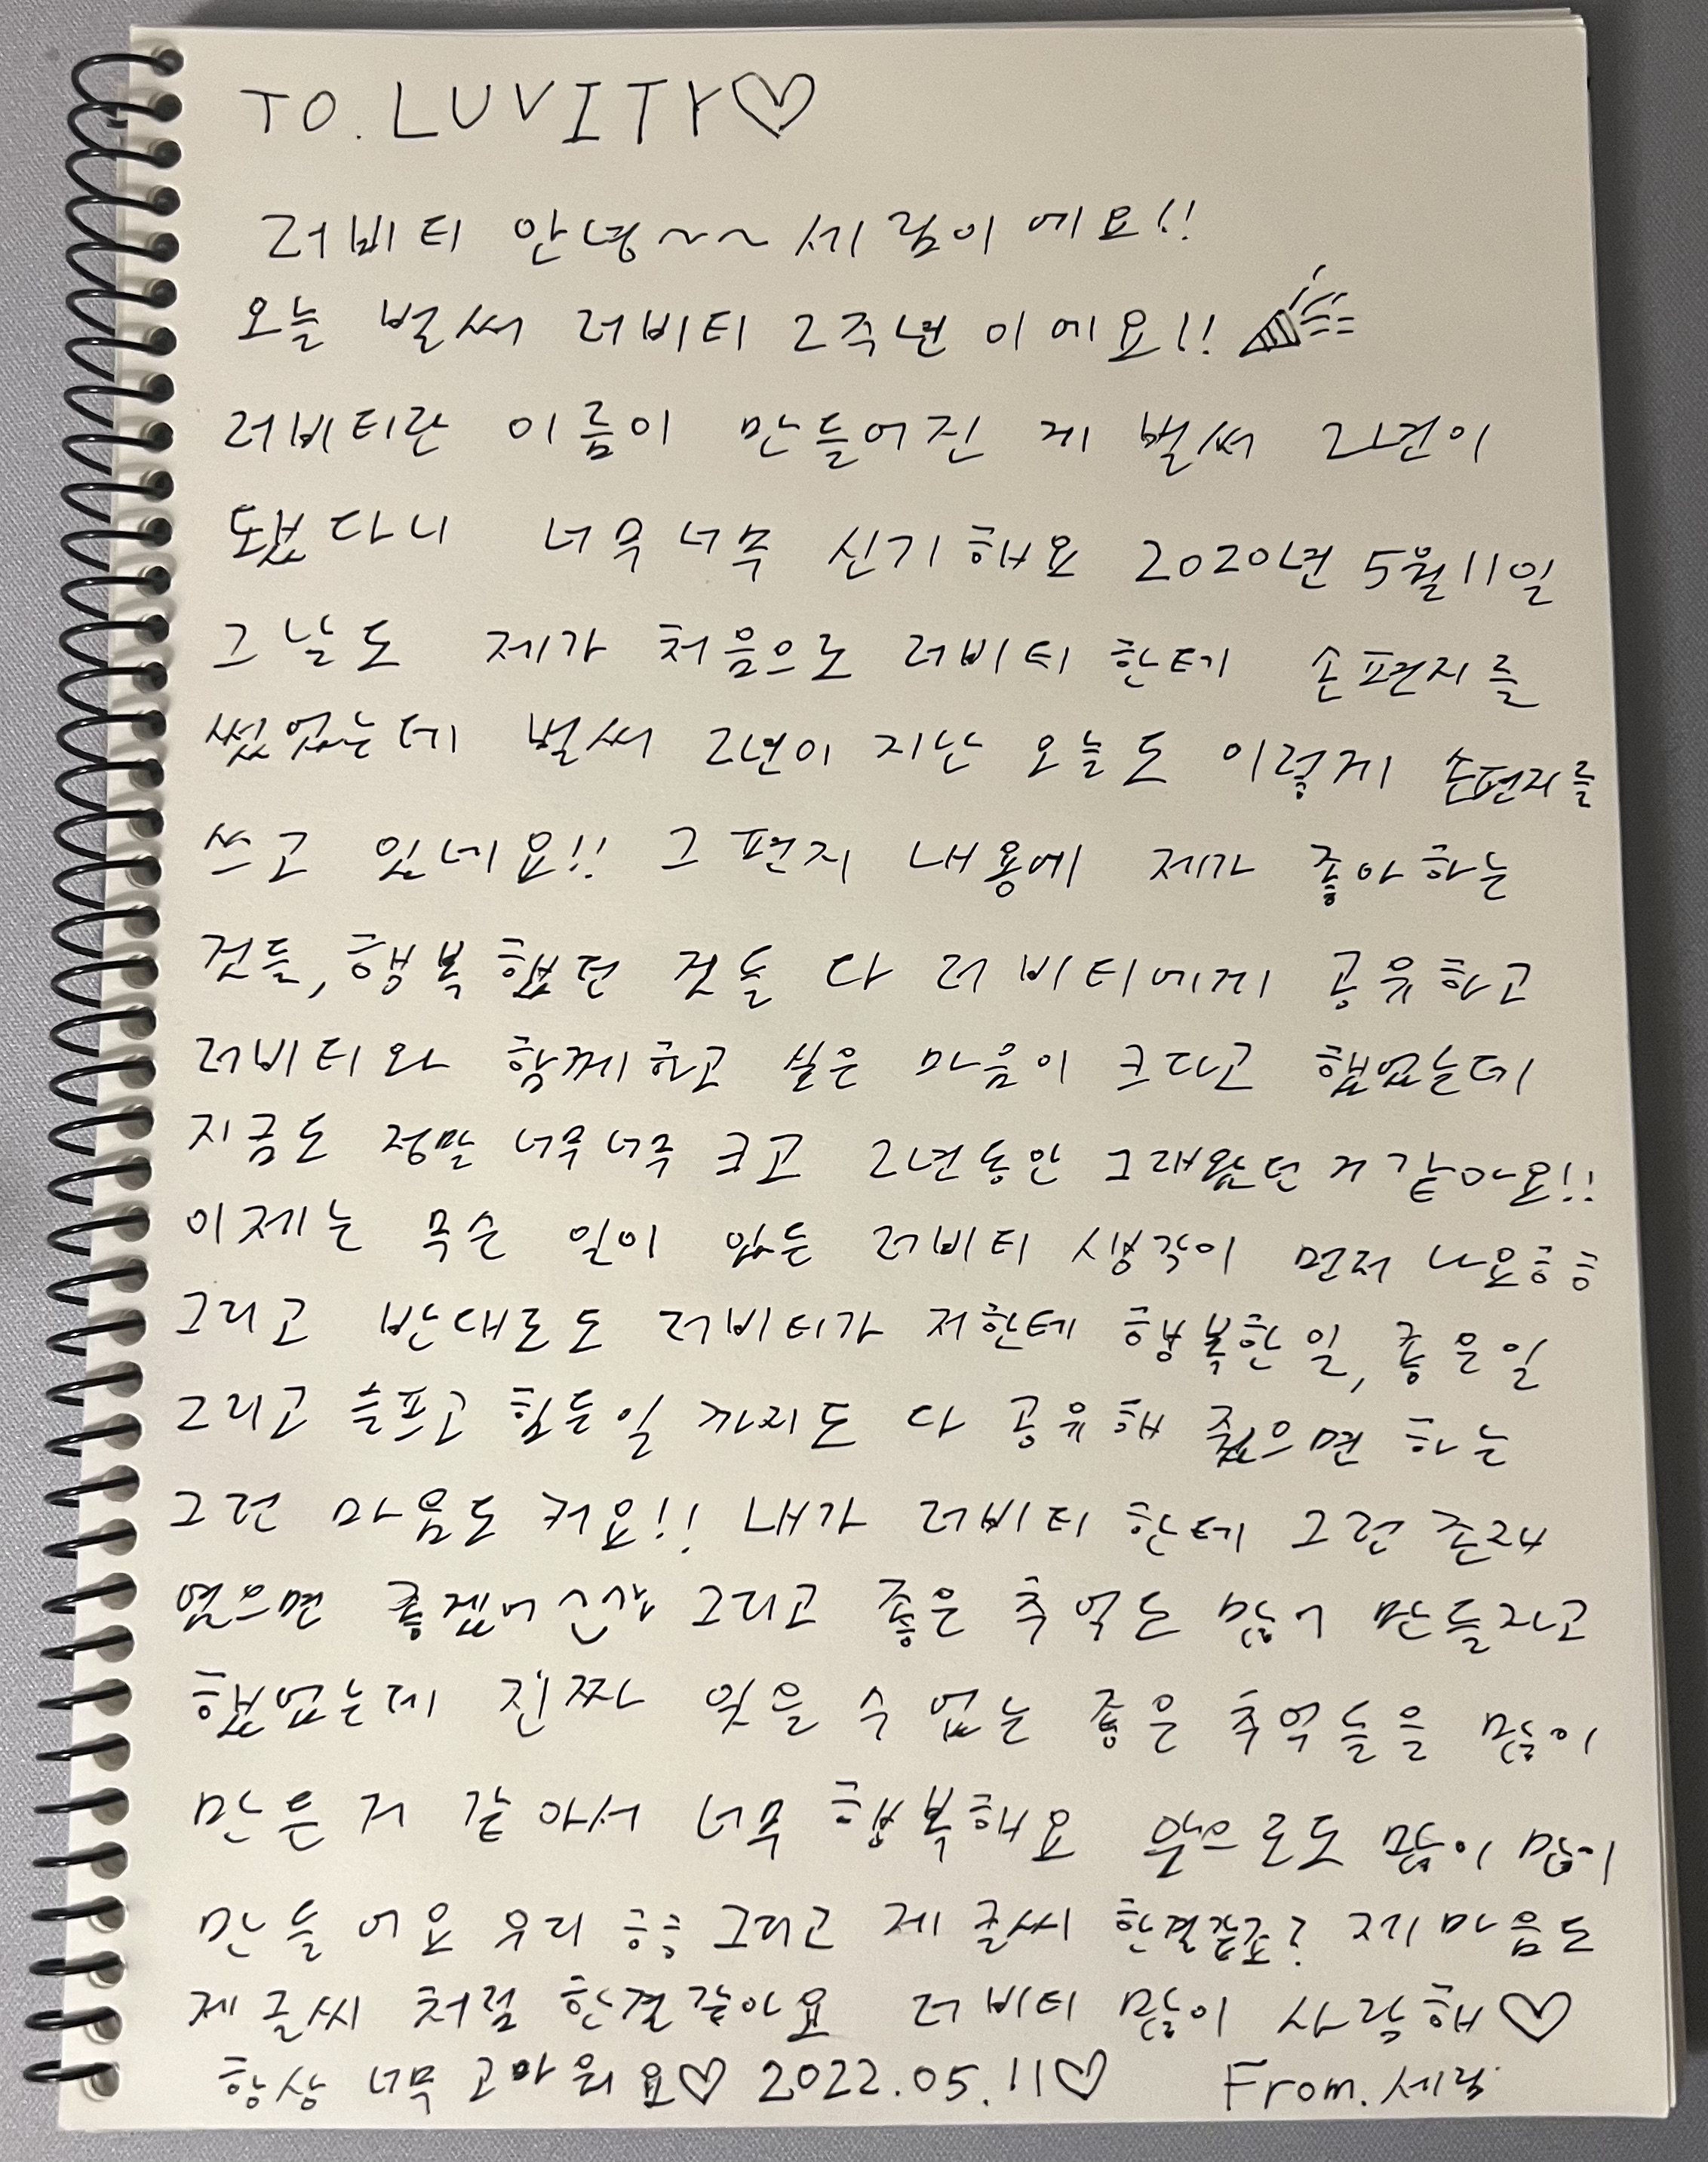 TO. LUVITY♡
러비티 안녕~~ 세림이에요!!
오늘 벌써 러비티 2주년이에요!!
러비티란 이름이 만들어진 게 벌써 2년이
됐다니 너무너무 신기해요 2020년 5월 11일
그날도 제가 처음으로 러비티한테 손편지를
썼었는데 벌써 2년이 지난 오늘도 이렇게 손편지를
쓰고 있네요!! 그 편지 내용에 제가 좋아하는
것들, 행복했던 것들 다 러비티에게 공유하고
러비티와 함께하고 싶은 마음이 크다고 했었는데
지금도 정말 너무너무 크고 2년동안 그래왔던 거 같아요!!
이제는 무슨 일이 있든 러비티 생각이 먼저 나요ㅎㅎ
그리고 반대로도 러비티가 저한테 행복한일, 좋은일
그리고 슬프고 힘든일 까지도 다 공유해 줬으면 하는
그런 마음도 커요!! 내가 러비티한테 그런 존재
였으면 좋겠어 그리고 좋은 추억도 많이 만들자고
했었는데 진짜 잊을 수 없는 좋은 추억들을 많이
만든 거 같아서 너무 행복해요 앞으로도 많이 많이
만들어요 우리 ㅎㅎ 그리고 제 글씨 한결같죠? 제 마음도
제 글씨 처럼 한결같아요 러비티 많이 사랑해♡
항상 너무 고마워요♡ 2022.05.11♡ From.세림